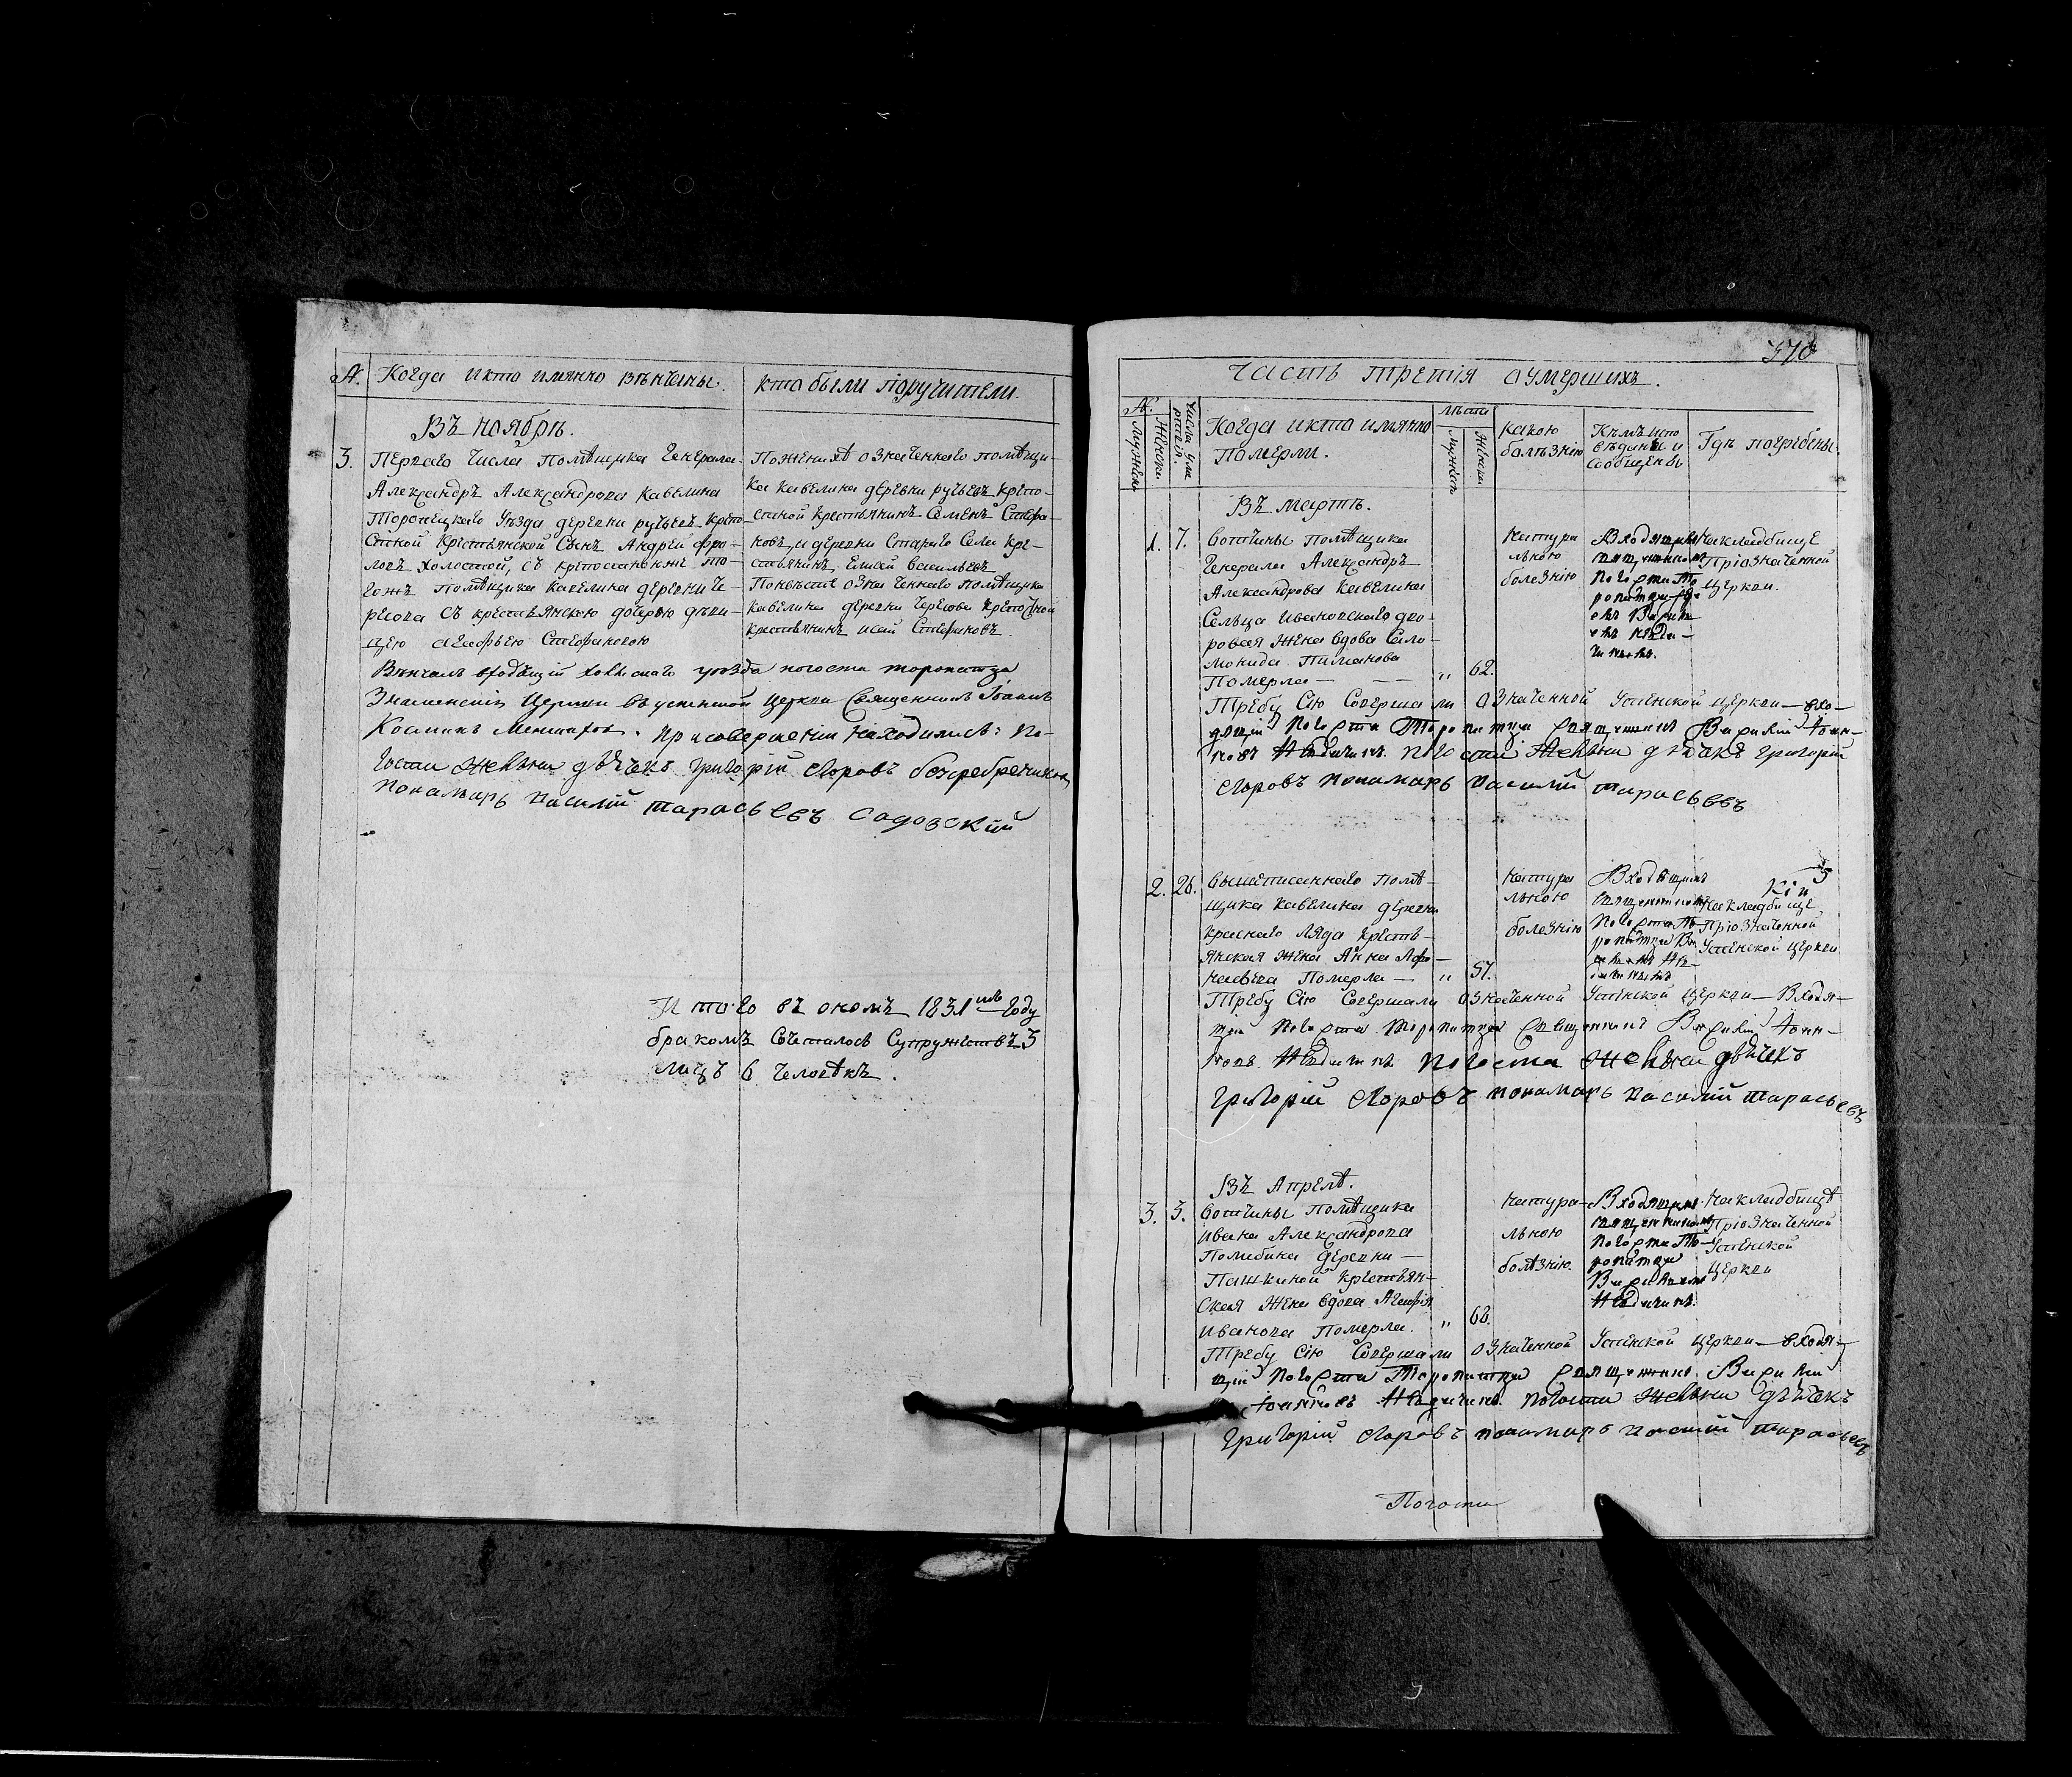 №. Когда икто имянно вѣнчаны.
кто были поручители.
Въ ноябрѣ.
3. Перваго числа помѣщика Генерала
Александръ Александрова Кавелина
Торопецкаго уѣзда деревни ручьевъ крепо-
стной крестьянской сынъ Андрей Фро-
ловъ холостой, съ крепостною то-
гожъ помѣщика Кавелина деревни Че-
рнсова съ крестьянскою дочерью дѣви-
цею Агафьею Стефановою
Пожених ѣ означеннаго помѣщи-
ка Кавелина деревни ручьевъ крепо-
стной крестьянинъ Семенъ Стефа-
новъ, и деревни Стараго Села кре-
стьянинъ Елисей Васильевъ
Поневѣсте означеннаго помѣщика
Кавелина деревни крепостной
крестьянинъ Исай Стефановъ.
Вѣнчалъ входящій Холмскаго уѣзда погоста торопатца
Знаменскія Церкви въ успенской церкви Священникъ Іоаннъ
Косминъ . при совершеніи находились: По-
госта Желны дьячекъ григорій Егоровъ безсребрениковъ
Пономарь василій тарасьевъ садовскій
Итого въ ономъ 1831мъ Году
бракомъ Съчеталось Супружествъ 3
лицъ 6 человѣкъ.
370
Часть третія оумершихъ.
№.
Мужеск
Женск
Числа уме
ртвія.
Когда икто имянно
Померли.
лѣта
Мужеск
Женск
какою
болѣзнію
Кѣмъ испо
вѣданы и
сообщены
Гдѣ погребены.
Въ мартѣ.
1. 7. Вотчины помѣщика
Генерала Александръ
Александрова Кавелина
Сельца Ивановскаго дво-
ровая жена вдова Соло-
монида Пиманова
Померла — — „ 62.
натура
льною
болезнію
Входящимъ
священникомъ
погоста То
ропатцы
На кладбище
При означенной
Церкви.
Требу Сію Совершали означенной Успенской церкви — вхо-
дящій погоста Торопатцы священникъ Василій Іоан-
новъ погоста Желны дьячекъ григорій
Егоровъ пономарь василій тарасьевъ
2. 26. Вышеписаннаго помѣ-
щика Кавелина деревни
краснаго ляда кресть-
янская жена Анна Афо-
насьева Померла — „ 57.
натура
льною
болезнію
Входящимъ
священникомъ
погоста То-
ропатцы
На кладбище
При означенной
Успенской церкви
Требу Сію Совершали означенной Успенской церкви — Входя-
щій погоста Торопатцы священникъ Василій Іоан-
новъ погоста Желны дьячекъ
григорій Егоровъ пономарь василій тарасьевъ
Въ Апрелѣ.
3. 3. Вотчины помѣщика
Ивана Александрова
деревни —
Пашкиной крестьян-
ская жена вдова Агафія
Иванова Померла. „ 68.
натура-
льною
болѣзнію.
Входящимъ
священникомъ
погоста То-
ропатцы
На кладбищѣ
При означенной
Успенской
Церкви
Требу Сію Совершали означенной Успенской церкви — входя-
щій погоста Торопатцы священникъ Василій
Іоанновъ погоста Желны дьячекъ
григорій Егоровъ пономарь василій тарасьевъ
Погоста